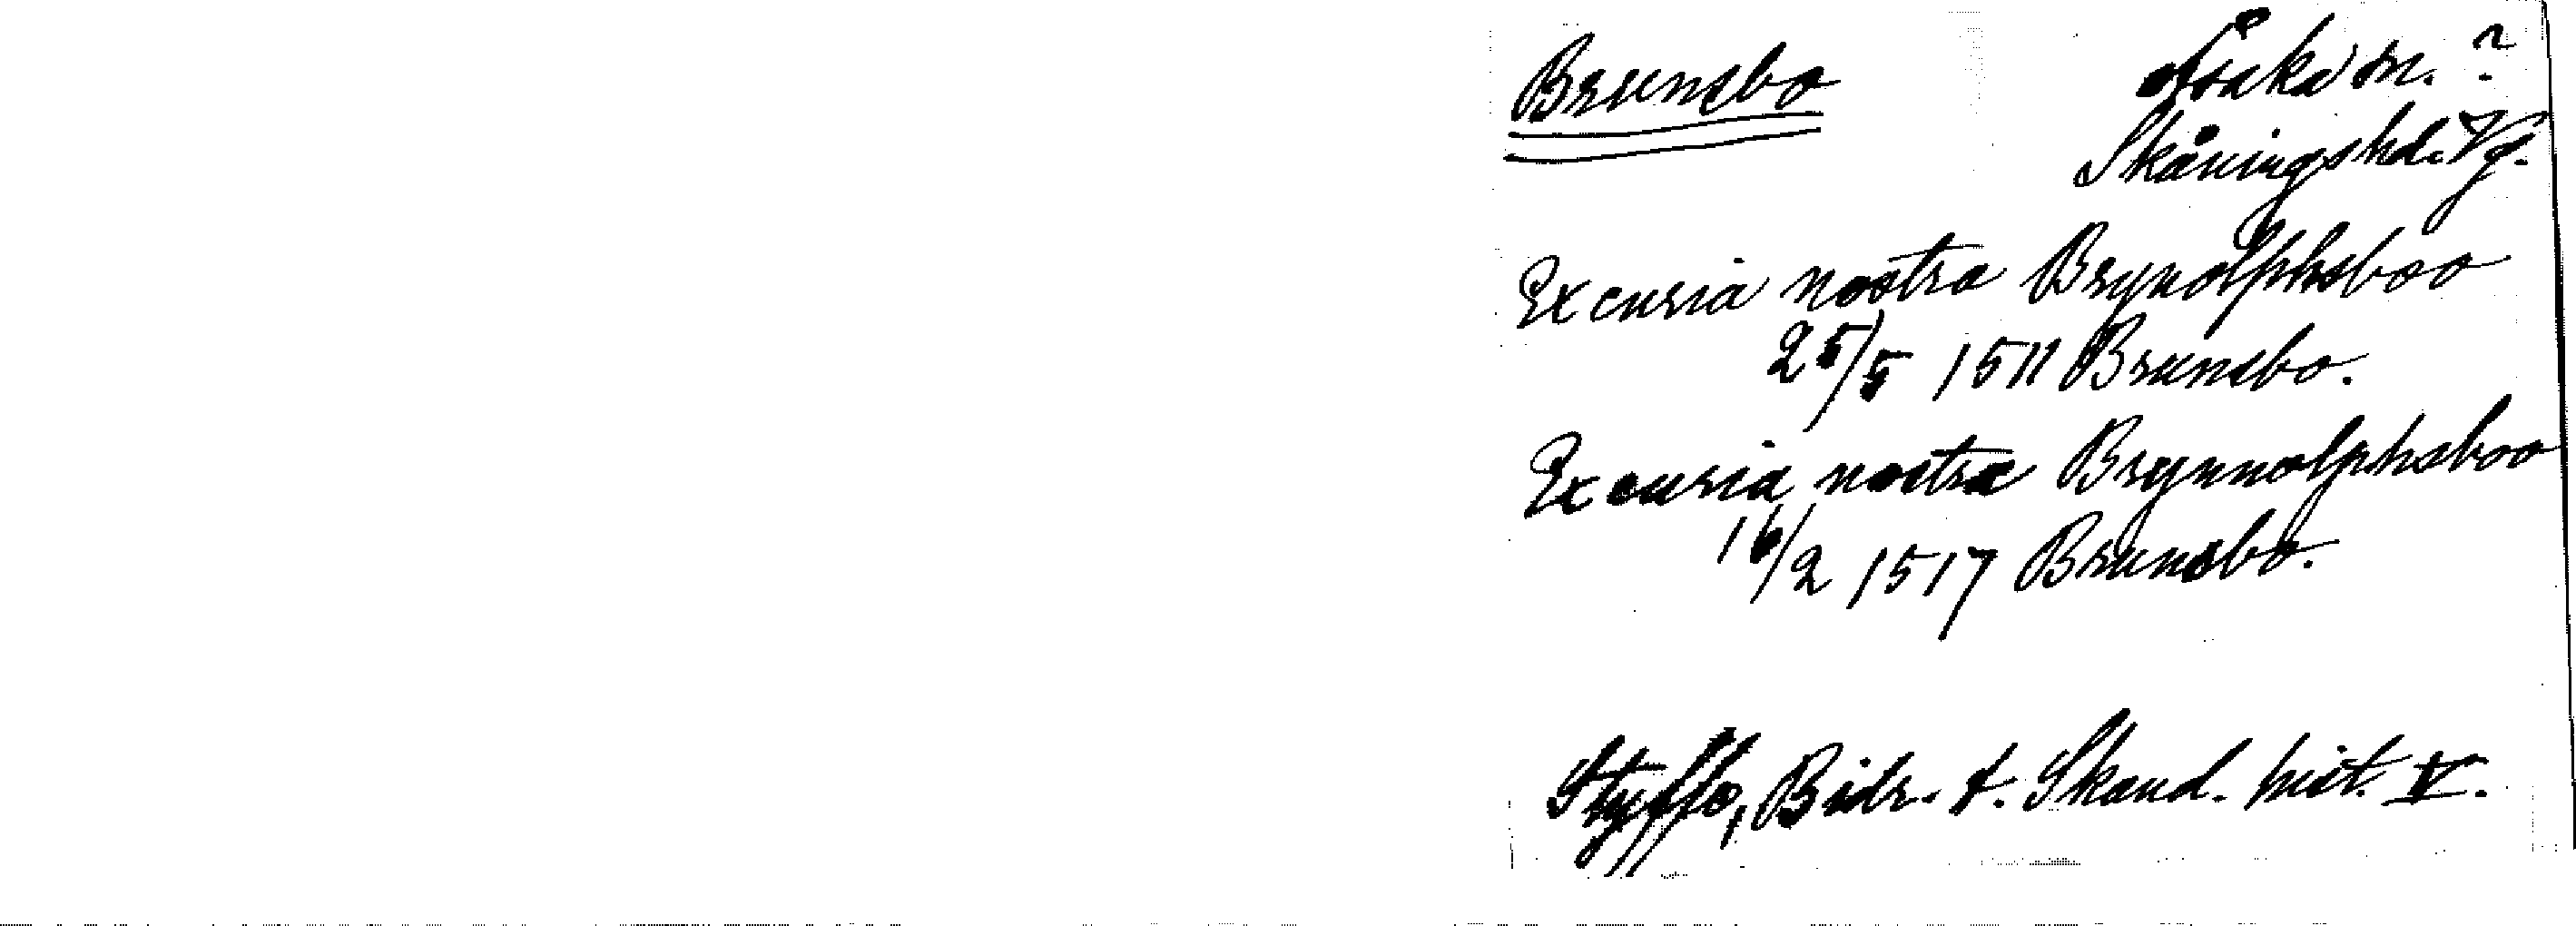 Brunsbo Åsaka sn. ?
Skånings hd. Vg.
Ex curia nostra Brynolphsboo
25/5 1511 Brunsbo.
Ex curia nostra Brynnolphsboo
16/2 1517 Brunsbo.
Styffe, Bidr. t. Skand. hist. V.